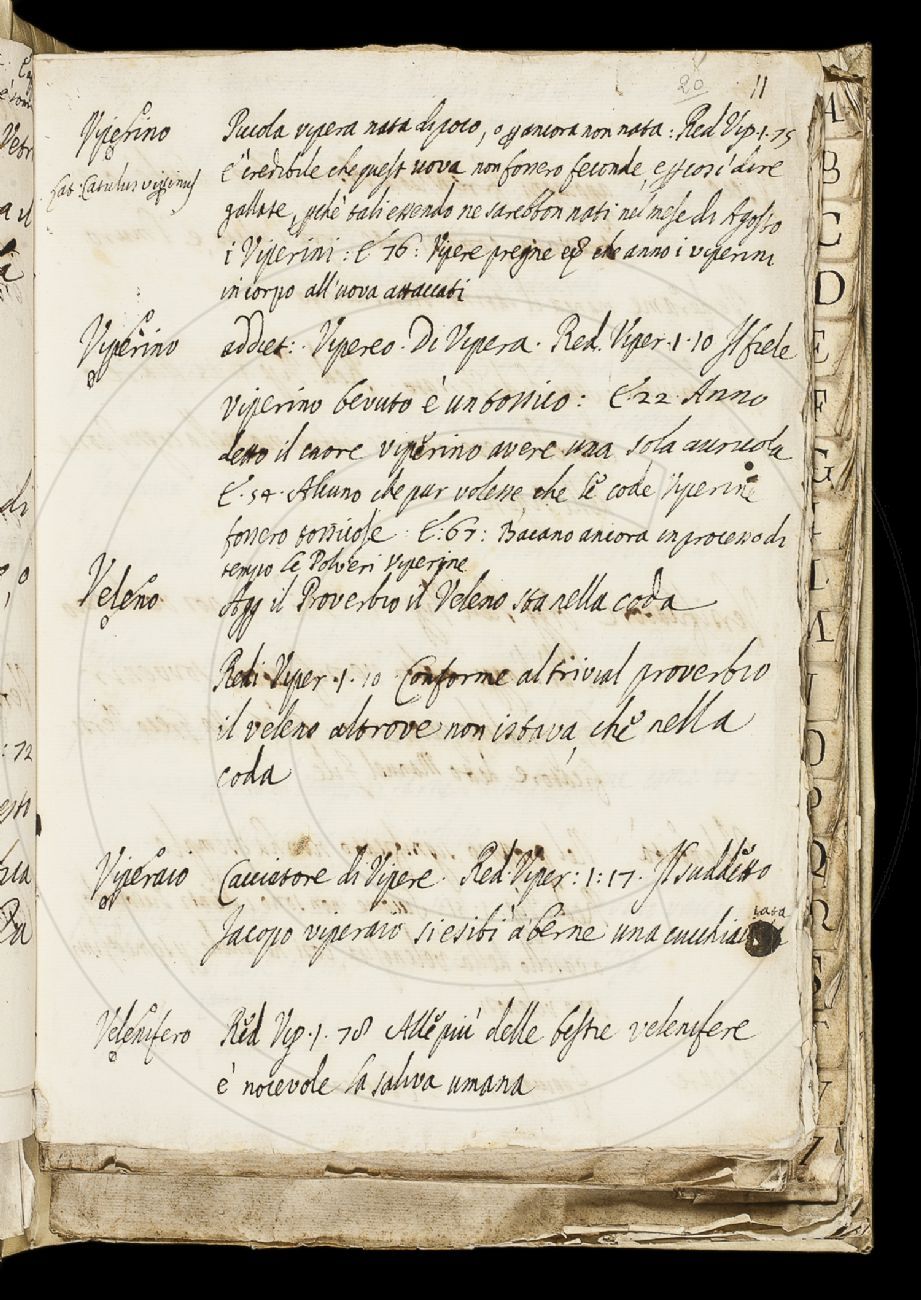 20 11
Viperino Piccola vipera nata di poco, o ancora non nata: Red Vip. 1. 75
Lat. Catulus viperinus
è credibile che quest uova non fossero feconde, e così dire
gallate, perchè tali essendo ne sarebbon nati nel mese di Agosto
i Viperini: E 76: Vipere pregne che anno i viperini
in corpo all'uova attaccati
Viperino addiet: Vipereo. Di Vipera. Red. Viper. 1. 10 Il fiele
viperino bevuto è un tossico: E. 22. Anno
detto il cuore viperino avere una sola auricola
E. 54. Alcuno che pur volesse, che le code Viperine
fossero tossicose: E: 67: Bacano ancora in processo di
tempo le Polveri Viperine
Veleno Agg il Proverbio il Veleno sta nella coda
Redi Viper. 1. 10 Conforme al trivial proverbio
il veleno altrove non istava, che nella
coda
Viperaio Cacciatore di Vipere. Red. Viper: 1: 17. Il suddetto
Jacopo viperaio si esibì a berne una cucchia
iata
Velenifero Red Vip. 1. 78 Alle più delle bestie velenifere
è nocevole la saliva umana
A
B
C
D
E
F
G
I
L
M
N
O
P
Q
R
S
T
V
Z
: 72
di